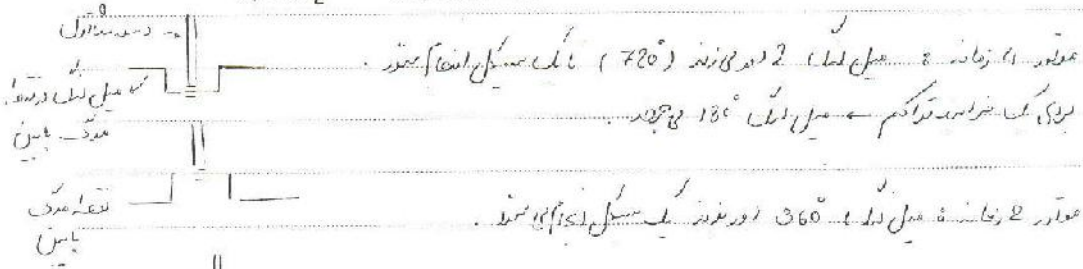 موتور 4 زمانه : میل لنگ 2 دور می زند (720°) تا یک سیکل انجام شود .
برای یک فرایند تراکم ← میل لنگ 180° می چرخد .
موتور 2 زمانه : میل لنگ 360° دور بزند یک سیکل انجام می شود .
میل لنگ در نقطه
مرگ پایین
نقطه مرگ
پایین